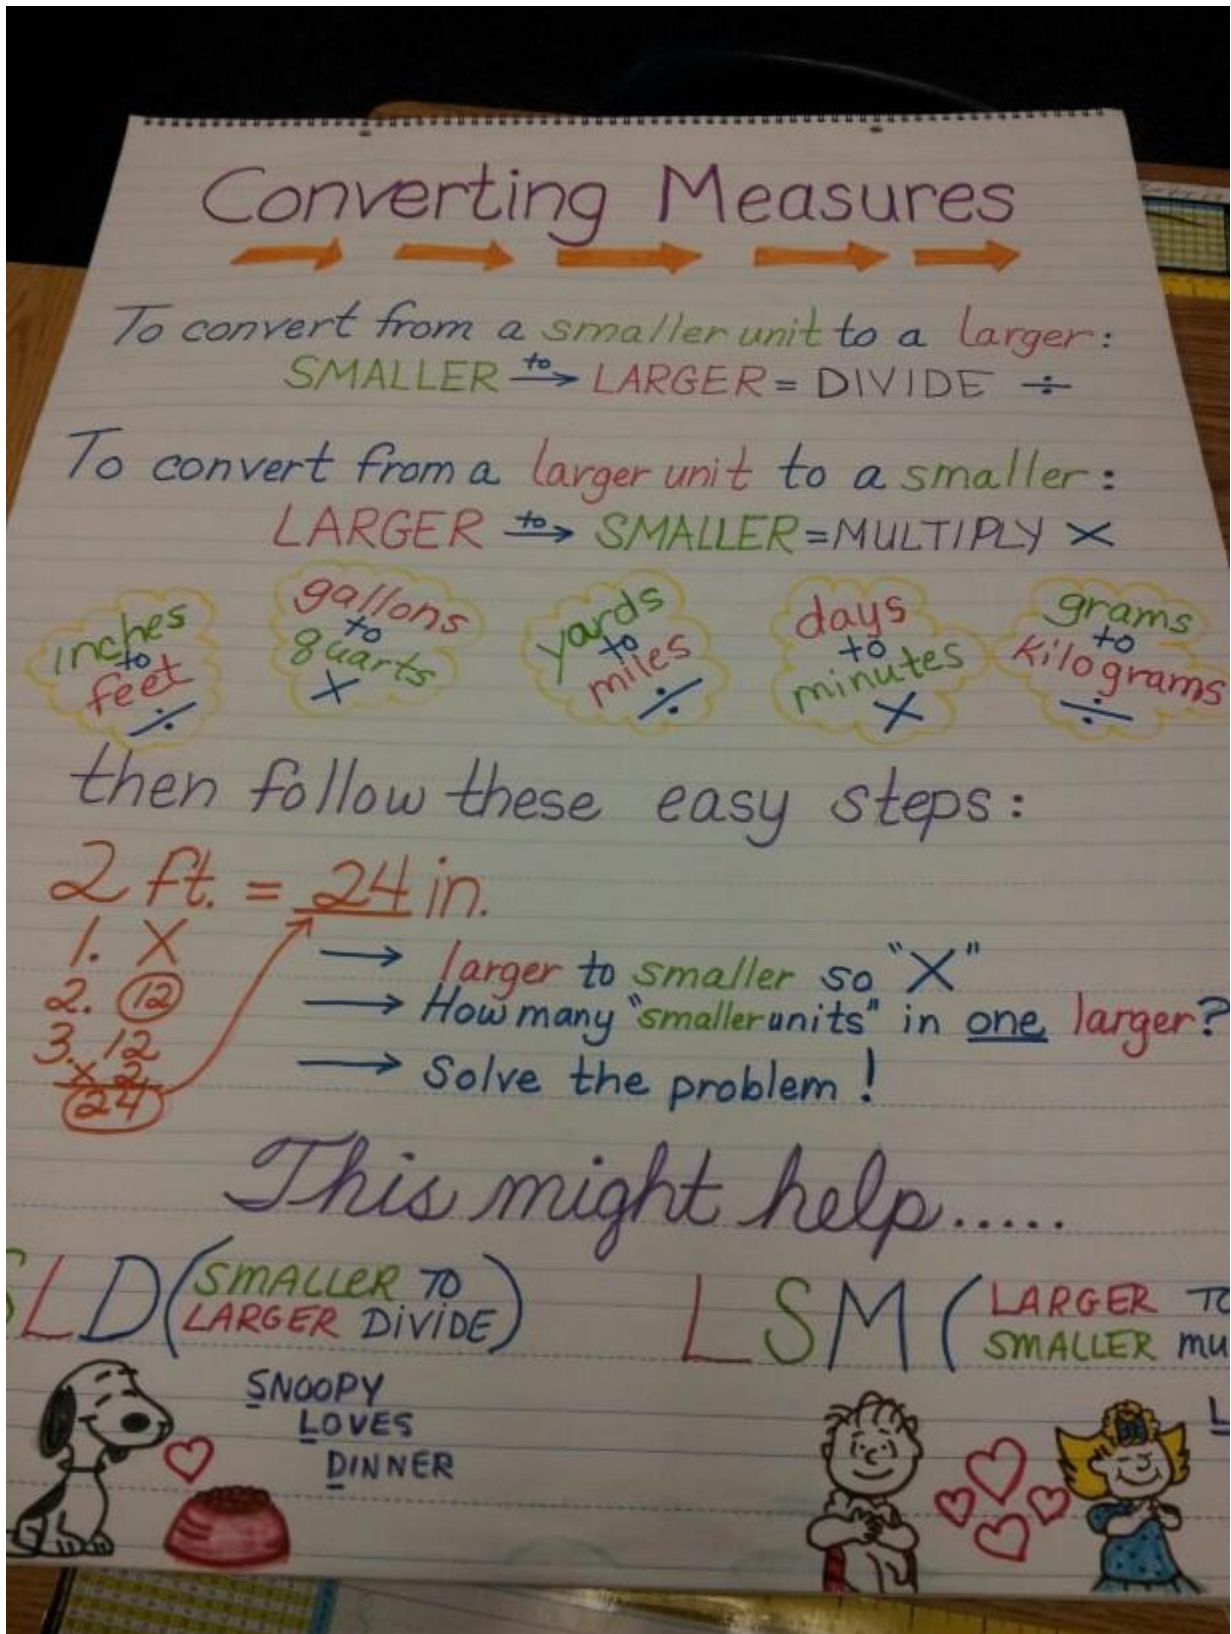 Converting Measures
To convert from a smaller unit to a larger:
SMALLER to → LARGER = DIVIDE ÷
To convert from a larger unit to a smaller:
LARGER to → SMALLER = MULTIPLY X
inches
to
feet
÷
gallons
to
quarts
X
yards
to
miles
÷
days
to
minutes
X
grams
to
kilograms
÷
then follow these easy steps:
2 ft. = 24 in.
1. X → larger to smaller so "X"
2. 12 → How many "smaller units" in one larger?
3. 12
x 2 → Solve the problem!
24
This might help.....
SLD (SMALLER TO
LARGER DIVIDE)
LSM (LARGER TO
SMALLER MU
SNOOPY
LOVES
DINNER
L